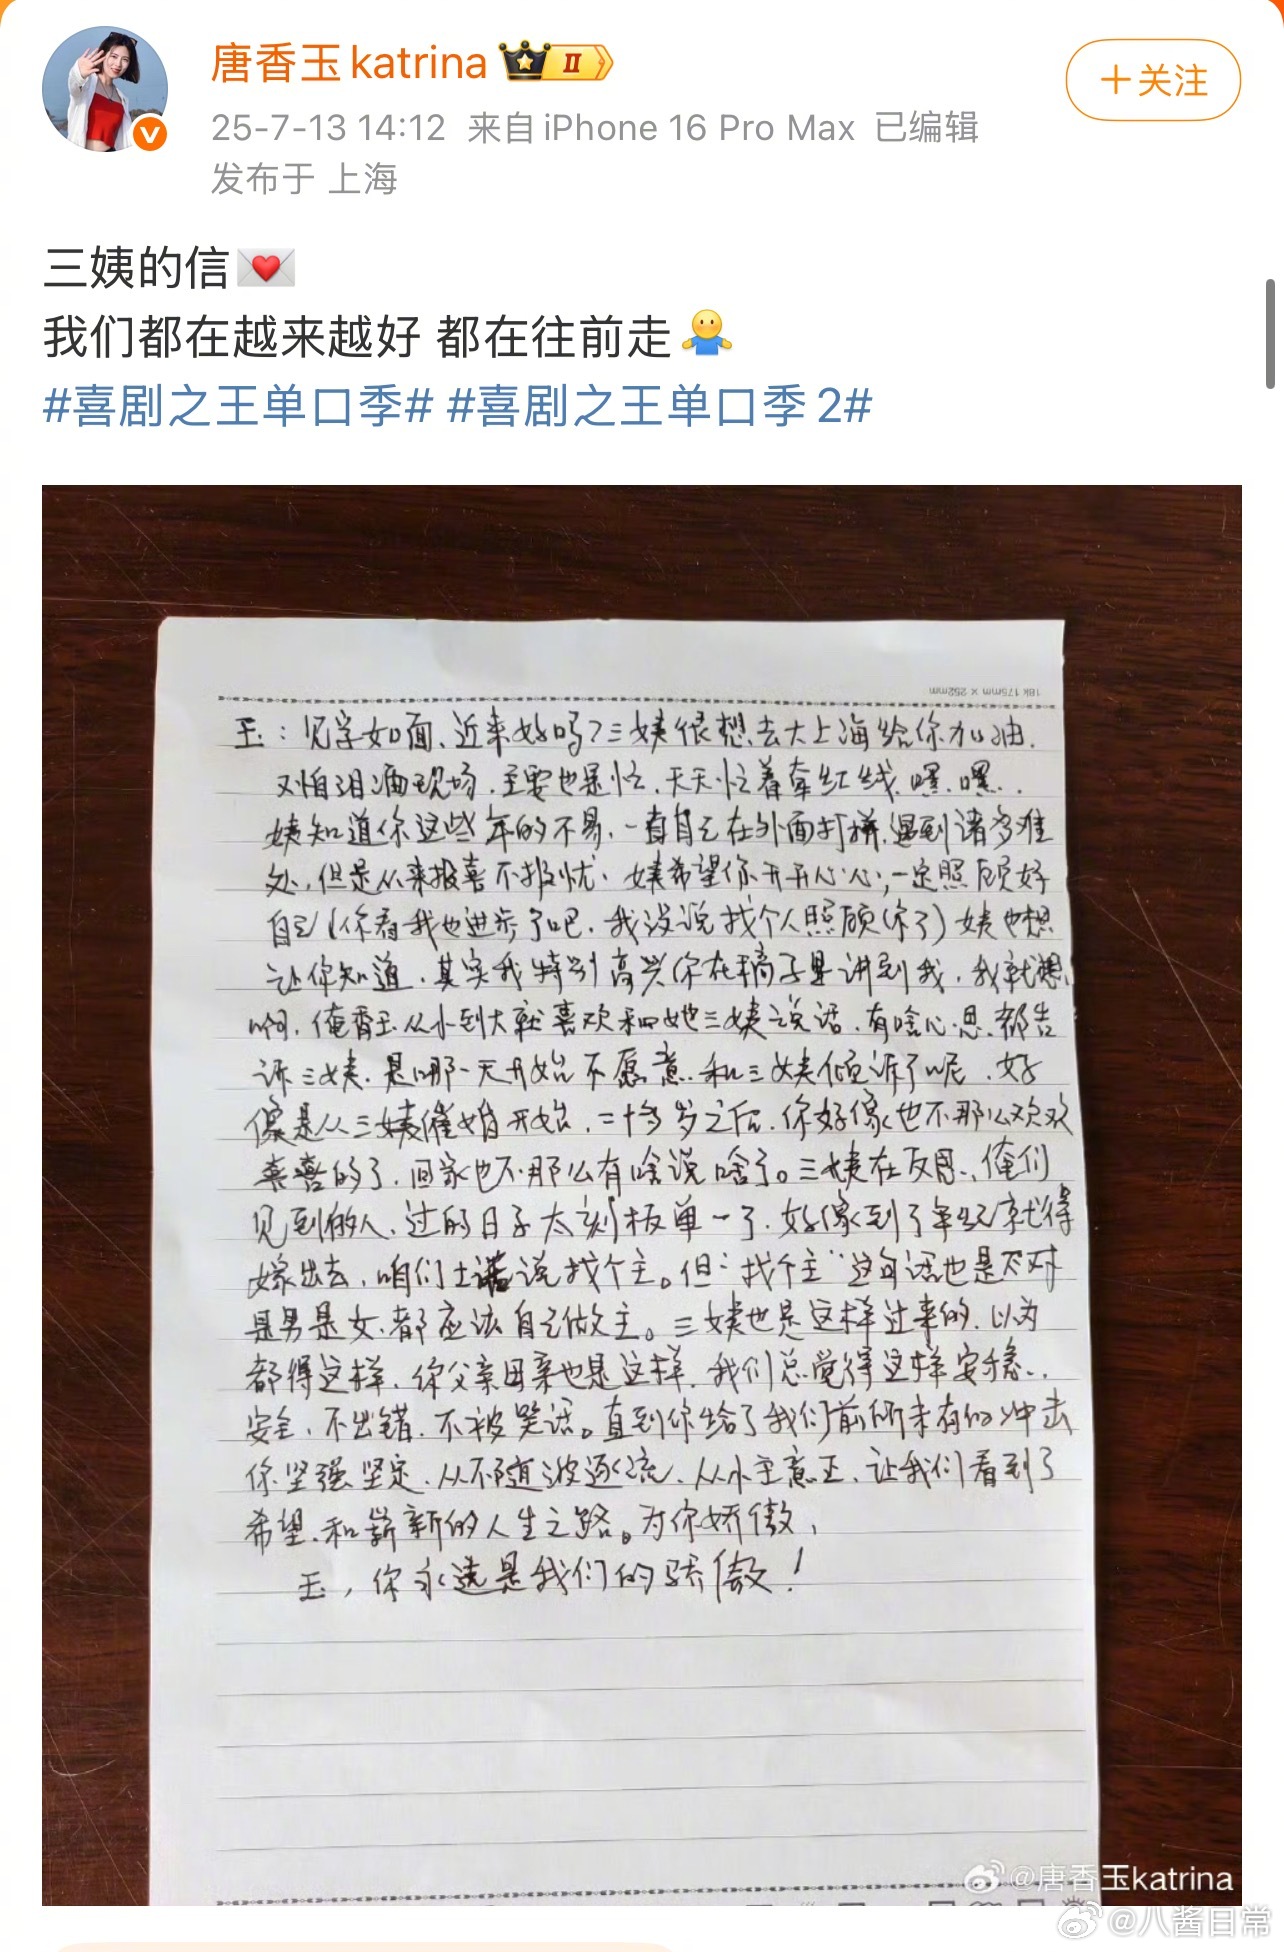 唐香玉katrina
II
+关注
25-7-13 14:12 来自iPhone 16 Pro Max 已编辑
发布于 上海
三姨的信
我们都在越来越好 都在往前走
#喜剧之王单口季# #喜剧之王单口季2#
18K 175mm × 252mm
玉：见字如面、近来好吗？三姨很想去大上海给你加油.
又怕泪洒现场.主要也是忙、天天忙着牵红线.嘿.嘿..
姨知道你这些年的不易、一直自己在外面打拼.遇到诸多难
处、但是从来报喜不报忧、姨希望你开开心心,一定照顾好
自己(你看我也进步了吧、我没说找个人照顾你了)姨也想
让你知道.其实我特别高兴你在稿子里讲到我.我就想
啊.俺香玉从小到大就喜欢和她三姨说话、有啥心思都告
诉三姨.是哪一天开始不愿意和三姨倾诉了呢.好
像是从三姨催婚开始.二十多岁之后.你好像也不那么欢欢
喜喜的了.回家也不那么有啥说啥了。三姨在反思、俺们
见到的人、过的日子太刻板单一了.好像到了年纪就得
嫁出去、咱们土话说找个主。但“找个主”这句话也是不对
是男是女都应该自己做主。三姨也是这样过来的.以为
都得这样.你父亲母亲也是这样.我们总觉得这样安稳、
安全、不出错.不被笑话。直到你给了我们前所未有的冲击
你坚强坚定.从不随波逐流、从小主意正、让我们看到了
希望.和崭新的人生之路。为你娇傲,
玉,你永远是我们的骄傲!
@唐香玉katrina
@八酱日常